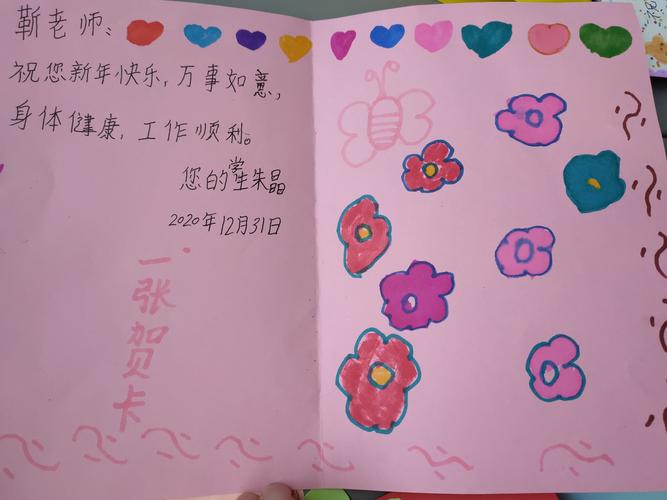 靳老师:
祝您新年快乐,万事如意,
身体健康,工作顺利。
您的学生朱晶
2020年12月31日
一张贺卡